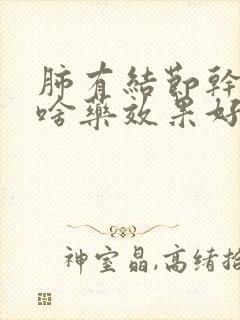 肺有結節幹
啥藥效果好
神室晶,高绪拾